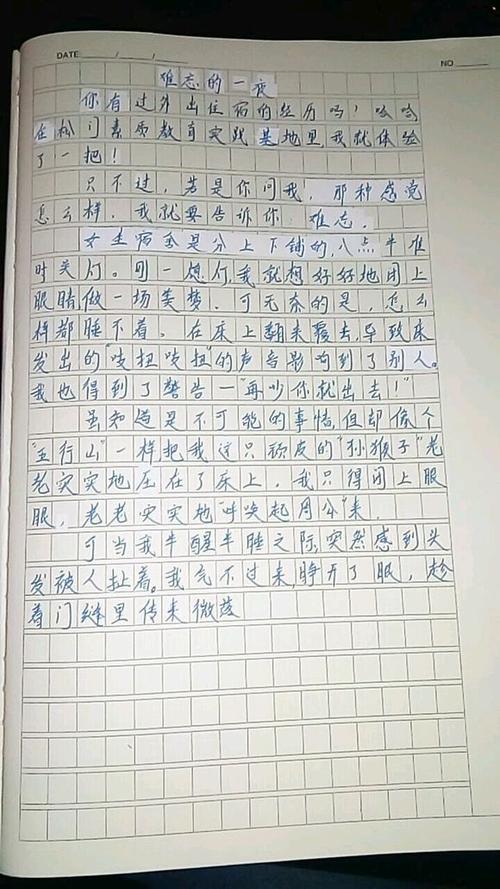 DATE / /
NO
难忘的一夜
你有过外出住宿的经历吗？哈哈
在松门素质教育实践基地里我就体验
了一把！
只不过，若是你问我，那种感觉
怎么样，我就要告诉你：难忘。
女生宿舍是分上下铺的，八点半准
时关灯。刚一熄灯，我就想好好地闭上
眼睛，做一场美梦。可无奈的是，怎么
样都睡不着。在床上翻来覆去，导致床
发出的“吱扭吱扭”的声音影响到了别人。
我也得到了警告一“再吵你就出去！”
虽知道是不可能的事情，但却像个
“五行山”一样把我这只顽皮的“孙猴子”老
老实实地压在了床上，我只得闭上眼
眼，老老实实地“呼唤起周公”来.
可当我半醒半睡之际，突然感到头
发被人扯着。我气不过来，睁开了眼，趁
着门缝里传来微